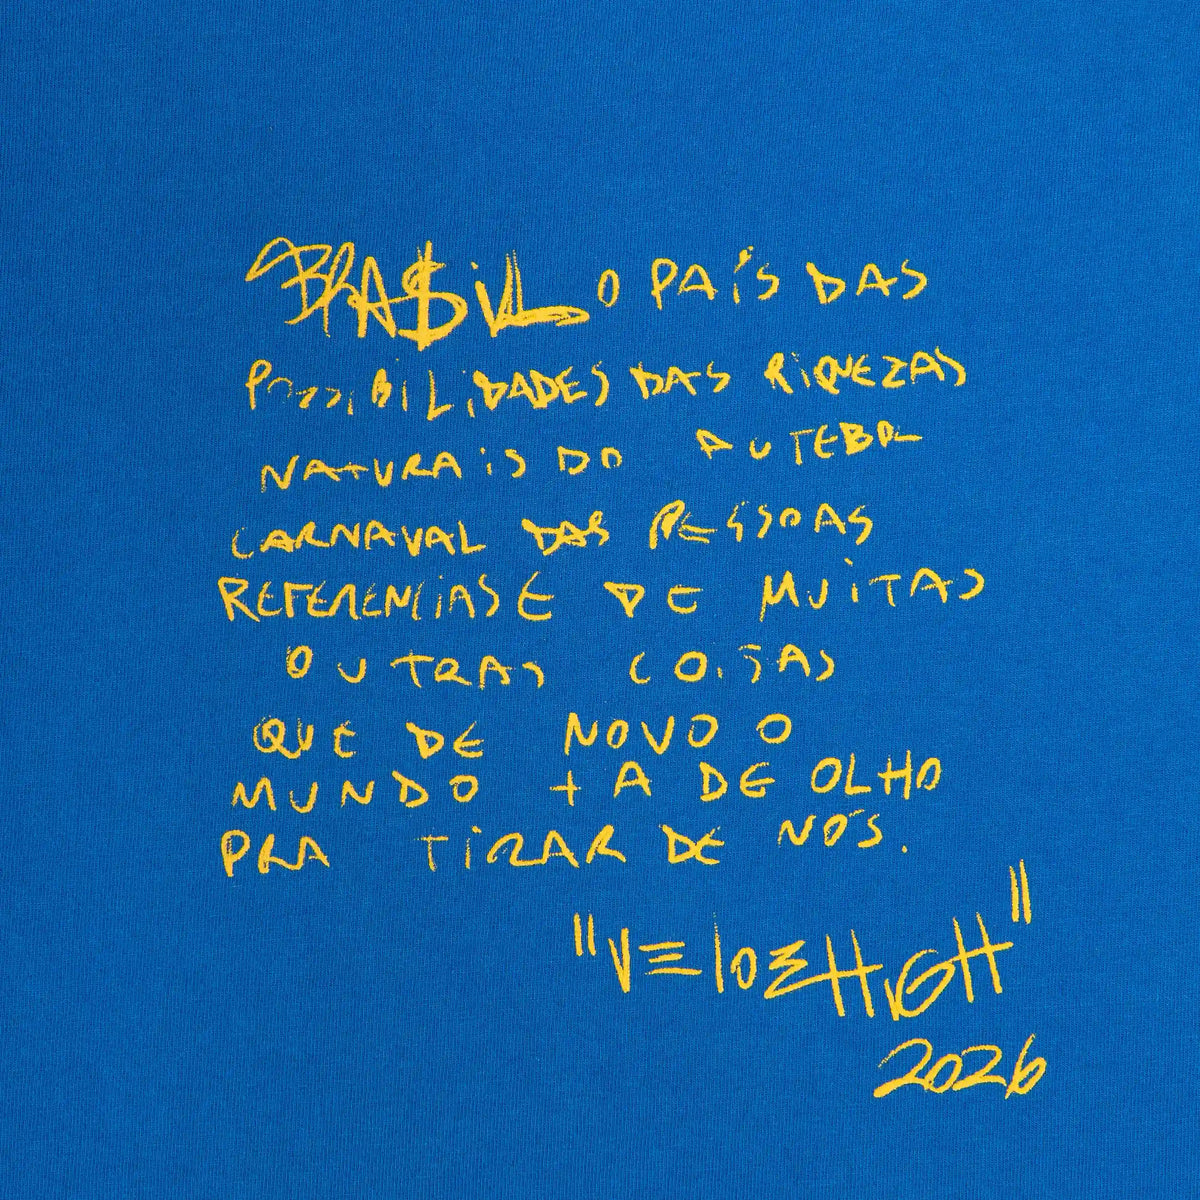 BRA$iL O PAíS DAS
POSSIBILIDADES DAS RIQUEZAS
NATURAIS DO FUTEBOL
CARNAVAL DAS PESSOAS
REFERENCIAS E DE MUITAS
OUTRAS COISAS
QUE DE NOVO O
MUNDO + A DE OLHO
PRA TIRAR DE NÓS.
"VELOEHIGH"
2026